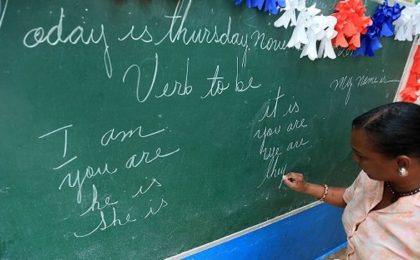 Today is thursday,
Verb to be
My name is
I am
you are
he is
She is
it is
you are
we are
they